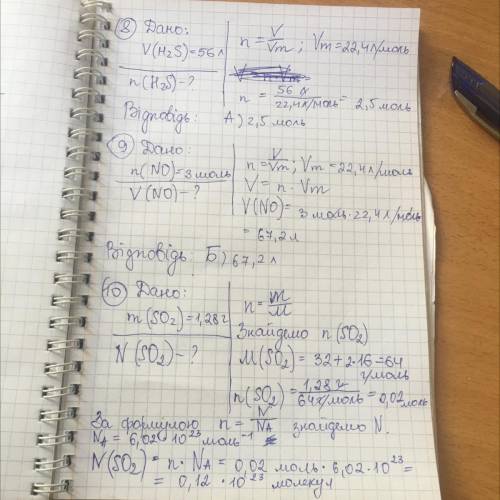 8 Дано:
V(H₂S)=56 л
n(H₂S)-?
n = V/Vm ; Vm=22,4л/моль
n = 56 л/22,4л/моль = 2,5 моль
Відповідь: А) 2,5 моль
9 Дано:
n(NO)=3 моль
V(NO)-?
n = V/Vm ; Vm=22,4л/моль
V = n · Vm
V(NO)= 3 моль·22,4 л/моль
= 67,2 л
Відповідь Б) 67,2 л
10 Дано:
m(SO₂)=1,28 г
N(SO₂)-?
n = m/M
Знайдемо n(SO₂)
M(SO₂) = 32+2·16=64 г/моль
n(SO₂) = 1,28 г/64г/моль = 0,02 моль
За формулою n = N/NA знайдемо N.
NA = 6,02 · 10²³ моль⁻¹
N(SO₂) = n · NA = 0,02 моль · 6,02 · 10²³ =
= 0,12 · 10²³ молекул